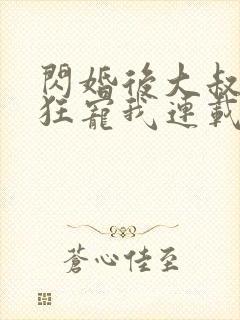 閃婚後大叔
狂寵我連載
蒼心佳至